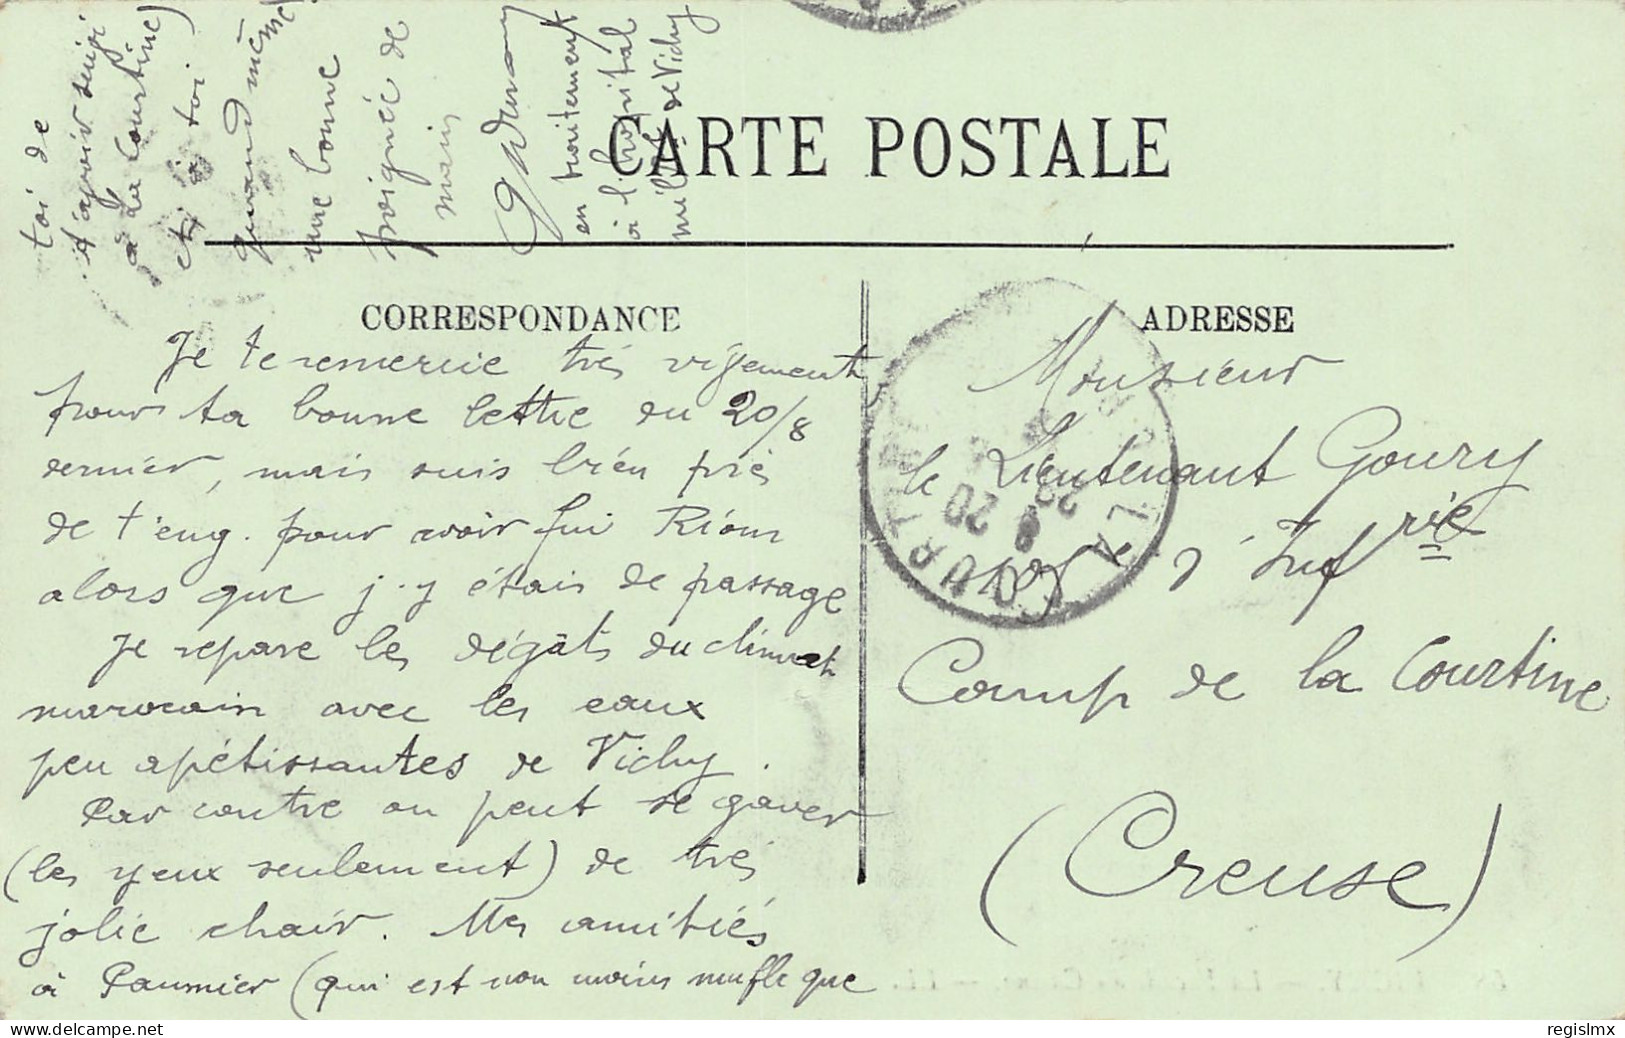 CARTE POSTALE
CORRESPONDANCE
Je te remercie très vivement
pour ta bonne lettre du 20/8
dernier, mais suis bien prié
de t'eng. pour avoir fui Riom
alors que j'y étais de passage
Je repare les dégâts du climat
marocain avec les eaux
peu apétissantes de Vichy.
Par contre on peut se gaver
(les yeux seulement) de très
jolie chair. Mes amitiés
à Paumier (qui est non moins mufle que
toi de
à La Courtine)
et à toi
quand même
une bonne
poignée de
main
en traitement
à l'hopital
milit de Vichy
ADRESSE
Monsieur
le Lieutenant Goury
d'Infrie
Camp de la Courtine
(Creuse)
LA COURTINE
20
regislmx
delcampe.net